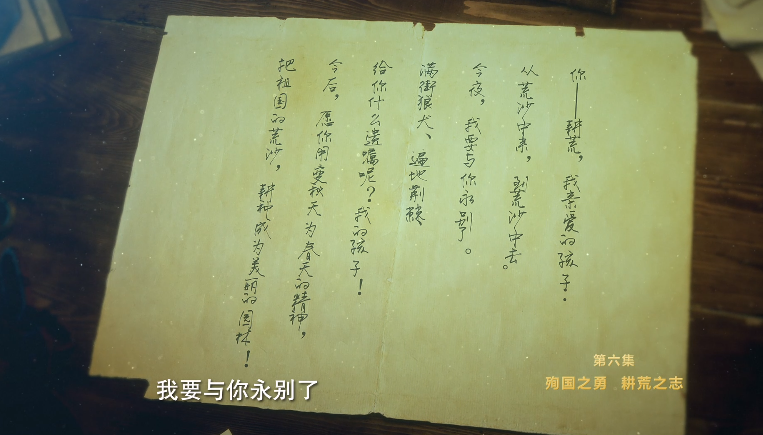 你——耕荒，我亲爱的孩子。
从荒沙中来，到荒沙中去。
今夜，我要与你永别了。
满街狼犬、遍地荆棘、
给你什么遗嘱呢？我的孩子！
今后，愿你用变秋天为春天的精神，
把祖国的荒沙，耕种成为美丽的园林！
第六集
殉国之勇 耕荒之志
我要与你永别了